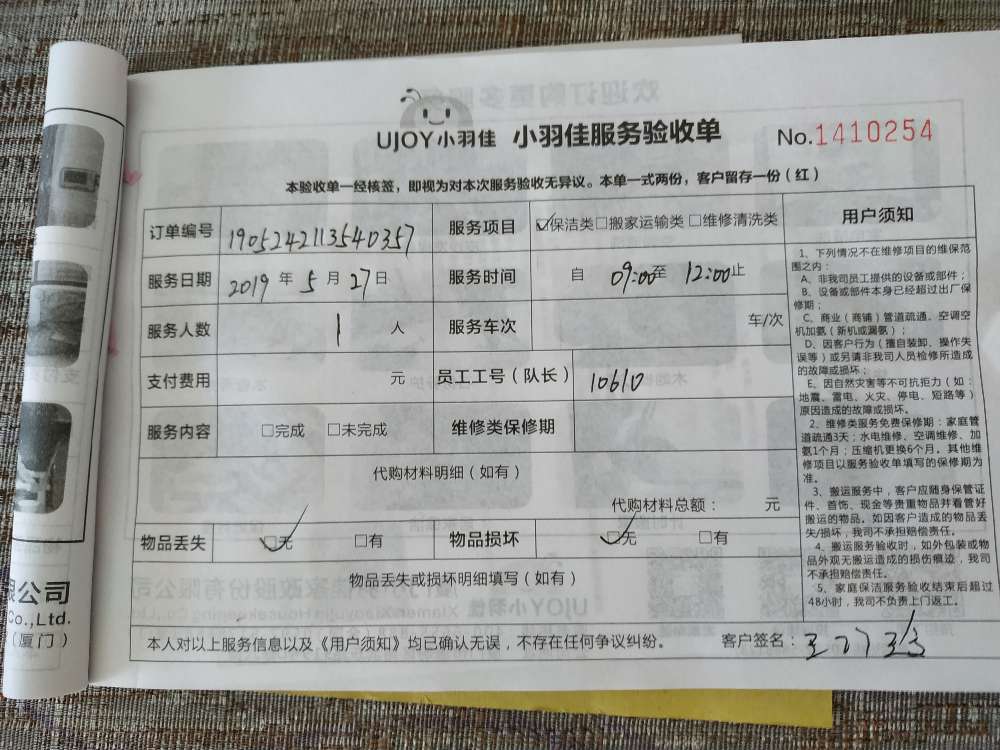 UJOY小羽佳 小羽佳服务验收单 No.1410254
本验收单一经核签，即视为对本次服务验收无异议。本单一式两份，客户留存一份（红）
订单编号 1905242113540357 服务项目 ☑保洁类□搬家运输类□维修清洗类
服务日期 2019 年 5 月 27 日 服务时间 自 09:00至 12:00止
服务人数 1 人 服务车次 车/次
支付费用 元 员工工号（队长） 10610
服务内容 □完成 □未完成 维修类保修期
代购材料明细（如有）
代购材料总额： 元
物品丢失 ☑无 □有 物品损坏 ☑无 □有
物品丢失或损坏明细填写（如有）
本人对以上服务信息以及《用户须知》均已确认无误，不存在任何争议纠纷。 客户签名：
用户须知
1、下列情况不在维修项目的维保范
围之内：
A、非我司员工提供的设备或部件；
B、设备或部件本身已经超过出厂保
修期；
C、商业（商铺）管道疏通、空调空
机加氨（新机或漏氨）；
D、因客户行为（擅自装卸、操作失
误等）或另请非我司人员检修所造成
的故障或损坏；
E、因自然灾害等不可抗拒力（如：
地震、雷电、火灾、停电、短路等）
原因造成的故障或损坏。
2、维修类服务免费保修期：家庭管
道疏通3天；水电维修、空调维修、加
氨1个月；压缩机更换6个月。其他维
修项目以服务验收单填写的保修期为
准。
3、搬运服务中，客户应随身保管证
件、首饰、现金等贵重物品并看管好
搬运的物品。如因客户造成的物品丢
失/损坏，我司不承担赔偿责任。
4、搬运服务验收时，如外包装或物
品外观无搬运造成的损伤痕迹，我司
不承担赔偿责任。
5、家庭保洁服务验收结束后超过
48小时，我司不负责上门返工。
公司
Co.,Ltd.
（厦门）